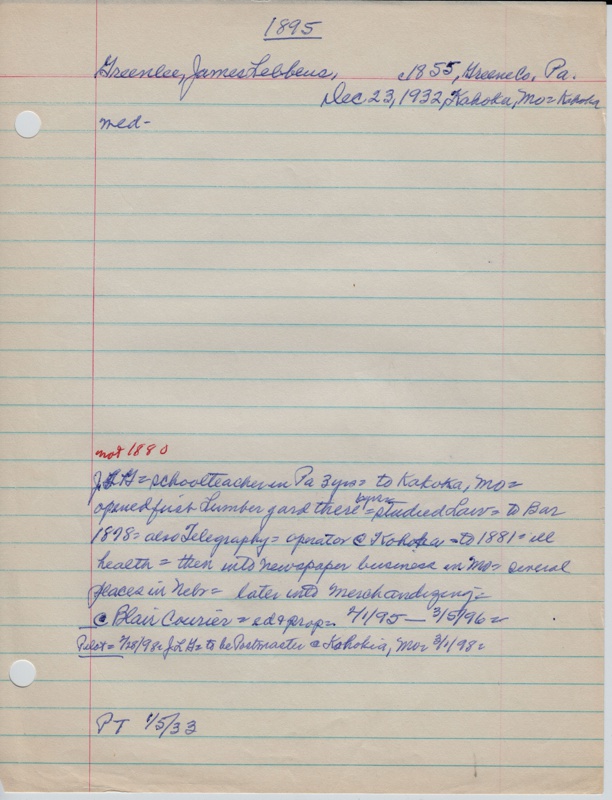 1895
Greenlee, James Lebbeus, c1855, Greene Co, Pa.
Dec 23, 1932, Kahoka, Mo = Kahoka
med-
not 1880
J.L.G = schoolteacher in Pa 3 yrs = to Kahoka, Mo =
opened first Lumber yard there = studied Law = to Bar
1878 = also Telegraphy = operator @ Kahoka = to 1881 = ill
health = then into newspaper business in Mo = several
places in Nebr = later into merchandizing =
@ Blair Courier = ed & prop = 2/1/95 — 3/5/96 =
Pilot = J.L.G = to be Postmaster @ Kahokia, Mo = 3/1/98 =
PT 1/5/33